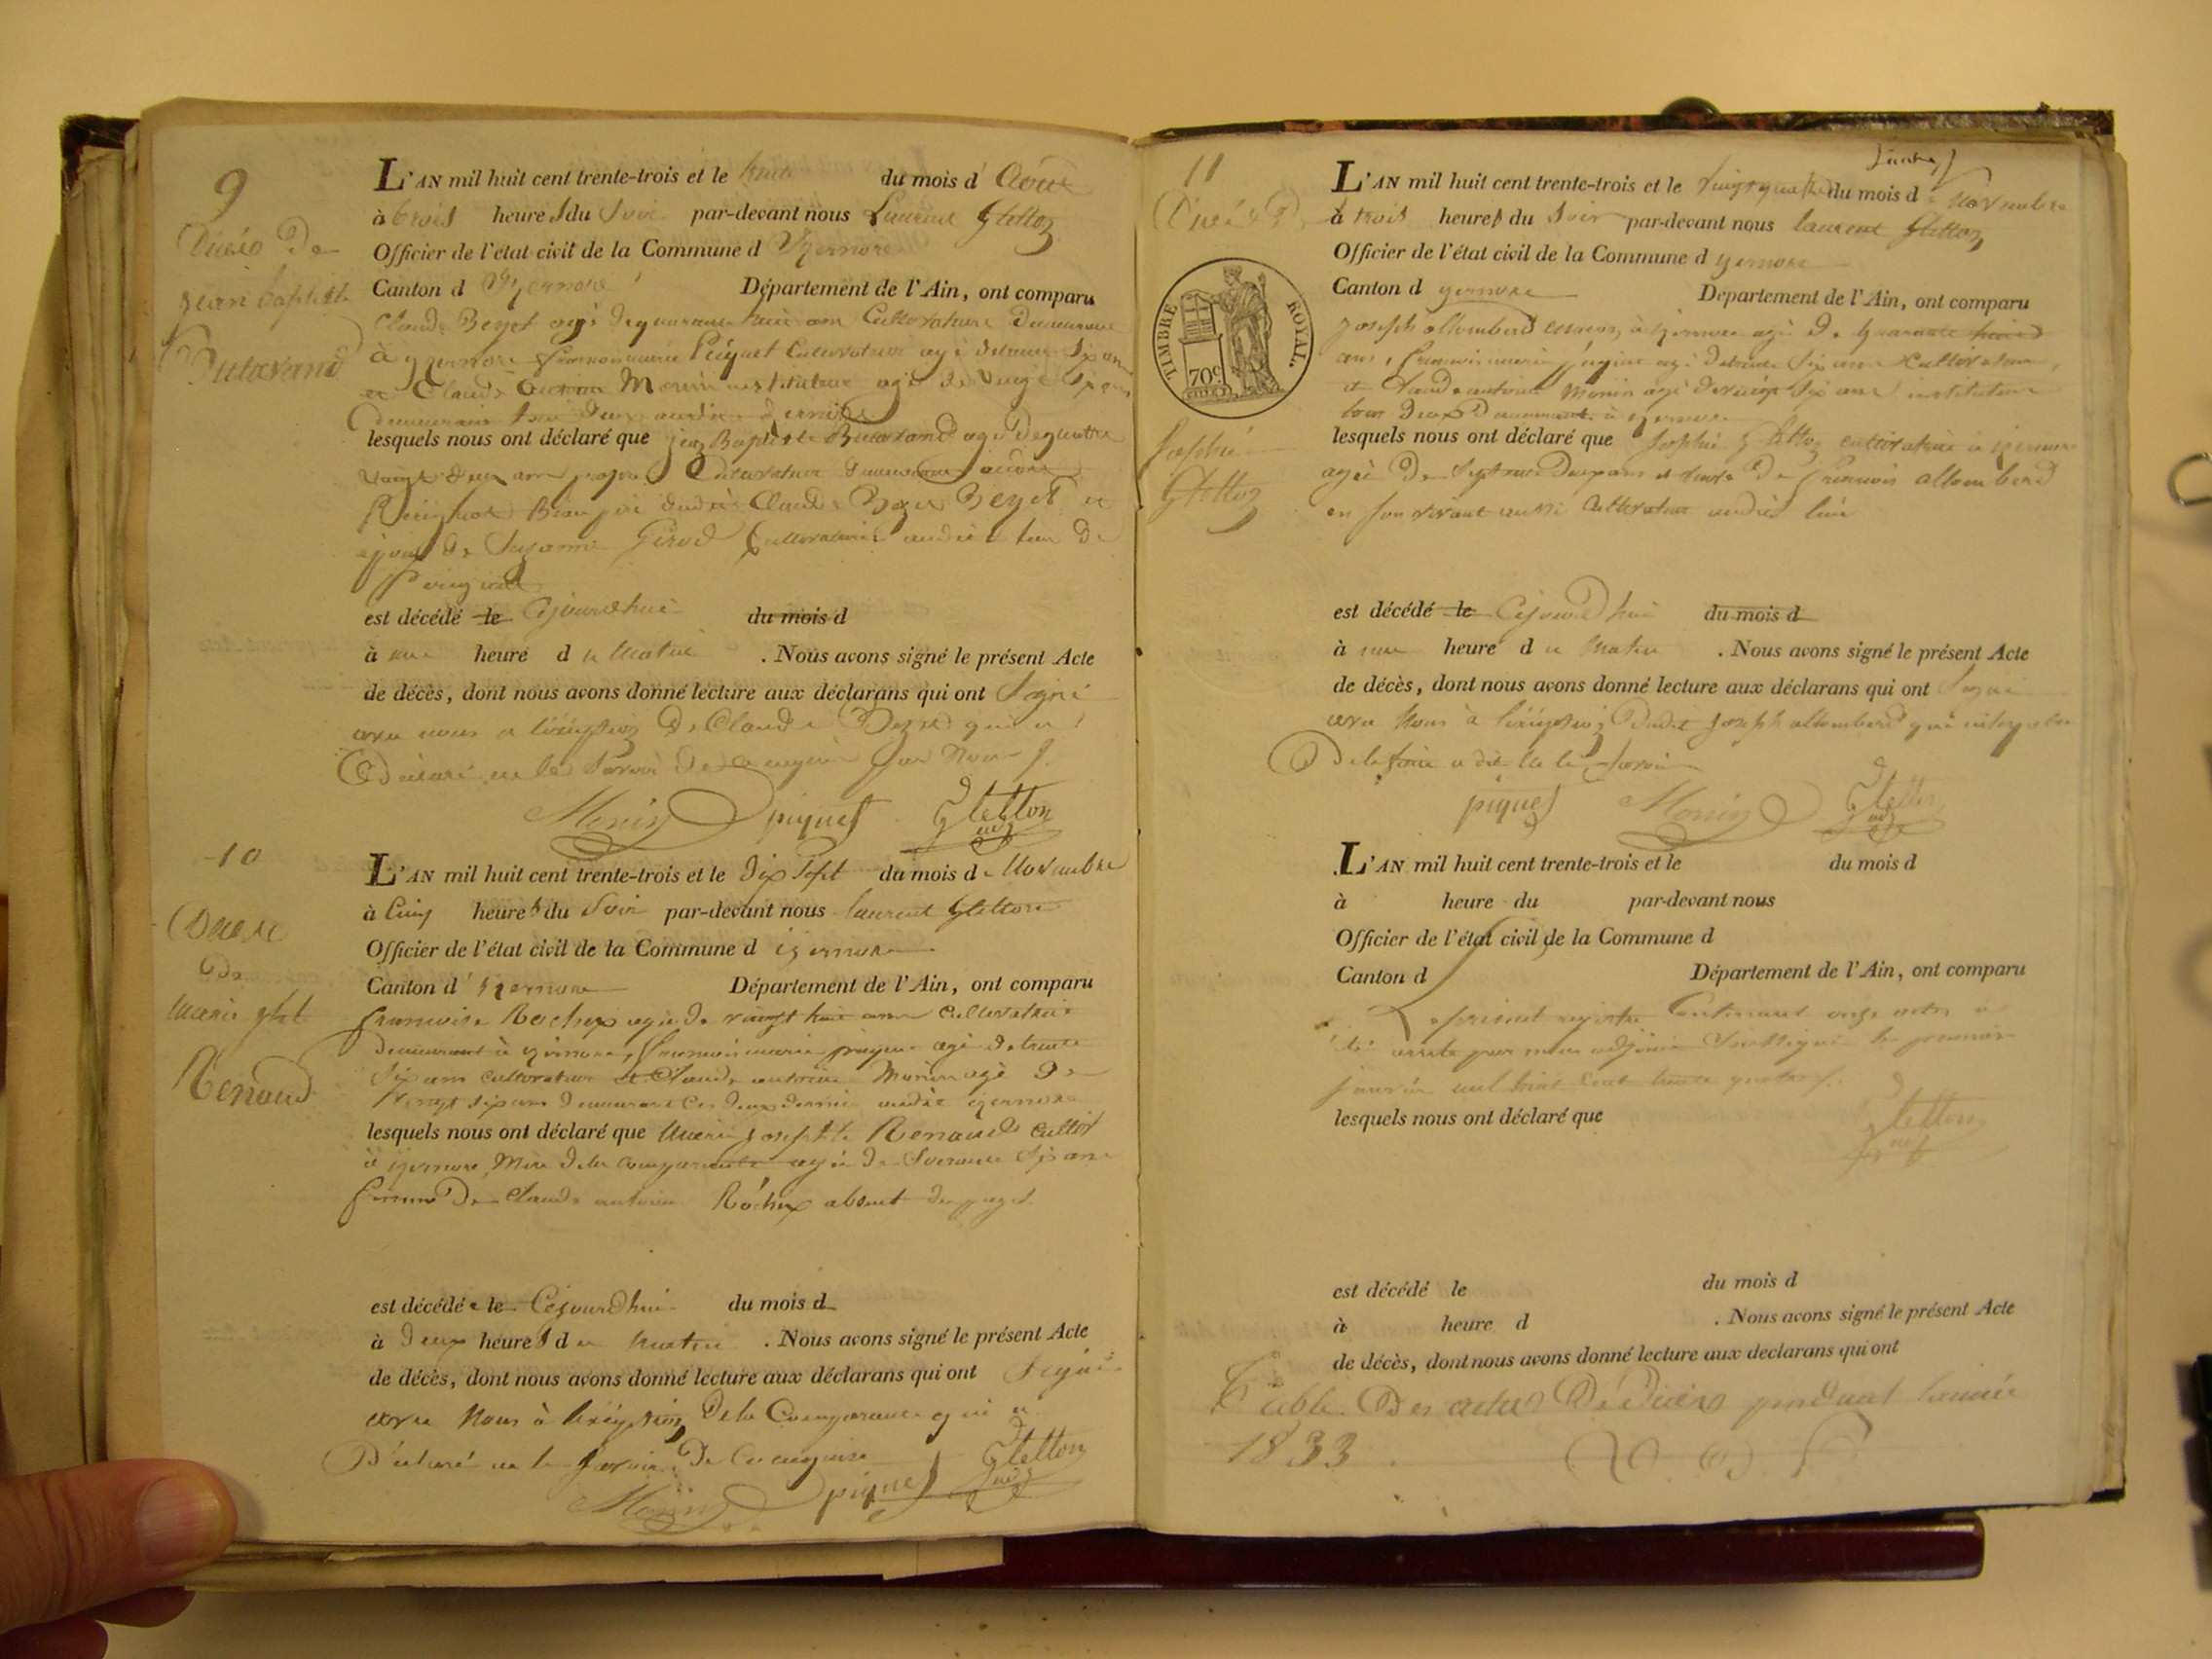 9
Décès de
jean baptiste
Butavand
L'AN mil huit cent trente-trois et le trente du mois d' Aout
à trois heures du Soir par-devant nous Laurent Gletton
Officier de l'état civil de la Commune d'Yzernore
Canton d'Yzernore Département de l'Ain, ont comparu
Claude Beyet agé de quarante huit ans Cultivateur Demeurant
à yzernore francois marie Piquet Cultivateur agé de trente Six ans
et Claude antoine Monin instituteur agé de vingt Six ans
Demeurant
lesquels nous ont déclaré que jean Baptiste Butavand agé de quatre
vingt deux ans Cultivateur
Beau pere dudit Claude Beyet et
époux de Suzanne Girod Cultivatrice audit lieu de
est décédé le Cejourd'hui du mois d
à une heure du Matin . Nous avons signé le présent Acte
de décès, dont nous avons donné lecture aux déclarans qui ont Signé
avec nous a l'éxéption de Claude Beyet qui a
Déclaré ne le Savoir de ce enquis par Nous
Monin piquet Gletton
adj
10
Décès
de
Marie
Renaud
L'AN mil huit cent trente-trois et le dix Sept du mois de Novembre
à Cinq heures du Soir par-devant nous laurent Gletton
Officier de l'état civil de la Commune d izernore
Canton d' yzernore Département de l'Ain, ont comparu
francoise Rochex agée de vingt huit ans Cultivatrice
demeurant à yzernore, francois marie piquet agé de trente
Six ans cultivateur et Claude antoine Monin agé De
Vingt six ans demeurant ces deux derniers audit izernore
lesquels nous ont déclaré que Marie josephte Renaud Cultiv
à yzernore Mere de la Comparante agée de Soixante Six ans
femme De Claude antoine Rochex absent du pays
est décédée le Cejourd'hui du mois d
à deux heures du matin . Nous avons signé le présent Acte
de décès, dont nous avons donné lecture aux déclarans qui ont Signé
avec Nous à l'éxéption de la Comparante qui a
Déclaré ne le Savoir De ce enquise
Monin piquet Gletton
adj
11
Décès D
TIMBRE ROYAL.
70c
Josephte
Gletton
L'AN mil huit cent trente-trois et le vingt quatre du mois d Novembre
à trois heures du Soir par-devant nous laurent Gletton
Officier de l'état civil de la Commune d yzernore
Canton d yzernore Département de l'Ain, ont comparu
joseph allombert à yzernore agé de quarante huit
ans, francois marie piquet agé de trente Six ans Cultivateur,
et Claude antoine Monin agé de vingt Six ans instituteur
tous deux Demeurant à izernore
lesquels nous ont déclaré que Josephte Gletton cultivatrice à izernore
agée De Septante Deux ans et veuve De francois allombert
en son vivant aussi Cultivateur audit lieu
est décédé le Cejourd'hui du mois d
à une heure du Matin . Nous avons signé le présent Acte
de décès, dont nous avons donné lecture aux déclarans qui ont Signé
avec Nous à l'éxéption Dudit joseph allombert qui interpellé
De le faire a dit ne le Savoir
piquet Monin Gletton
adj
L'AN mil huit cent trente-trois et le du mois d
à heure du par-devant nous
Officier de l'état civil de la Commune d
Canton d Département de l'Ain, ont comparu
Le présent registre Contenant onze actes a
été arrêté par nous adjoint Soussigné le premier
janvier mil huit Cent trente quatre
lesquels nous ont déclaré que
Gletton
adj
est décédé le du mois d
à heure d . Nous avons signé le présent Acte
de décès, dont nous avons donné lecture aux declarans qui ont
Table Des actes De Décès pendant l'année
1833